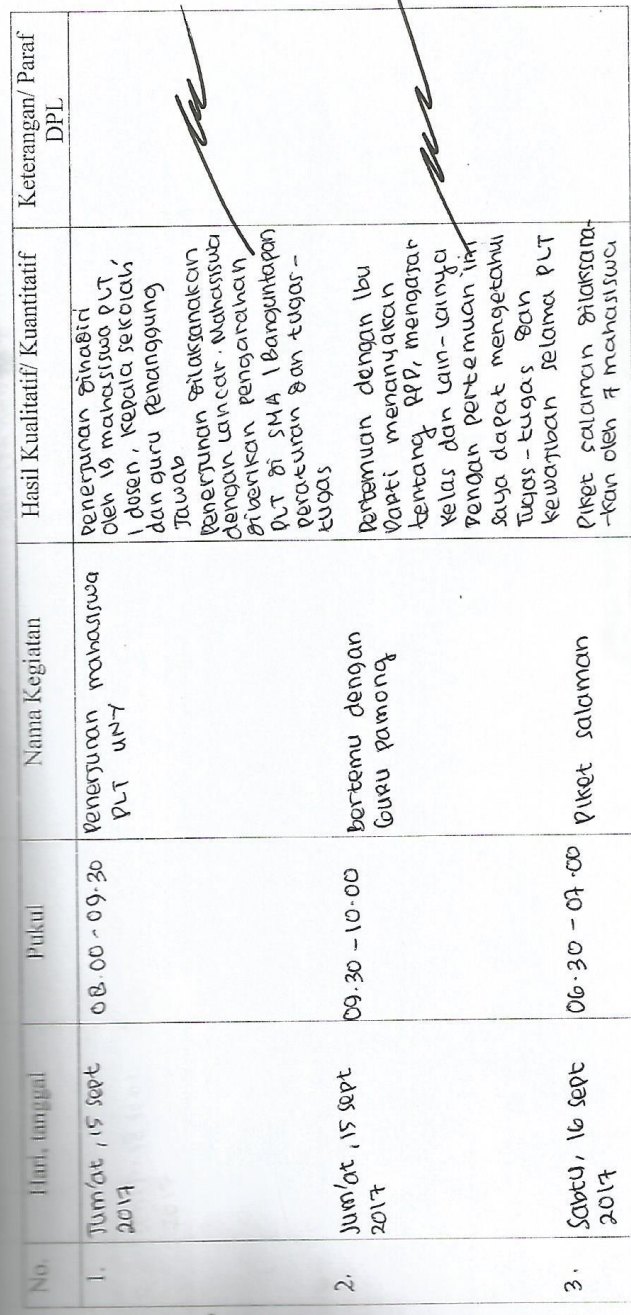 No. Hari, tanggal Pukul Nama Kegiatan Hasil Kualitatif/ Kuantitatif Keterangan/ Paraf
DPL
1. Jum'at, 15 Sept
2017
08.00 - 09.30
Penerjunan mahasiswa
PLT UNY
Penerjunan dihadiri
oleh 19 mahasiswa PLT,
1 dosen, kepala sekolah,
dan guru Penanggung
Jawab
Penerjunan dilaksanakan
dengan lancar. Mahasiswa
diberikan pengarahan
PLT di SMA 1 Banguntapan
peraturan dan tugas-
tugas
2. Jum'at, 15 Sept
2017
09.30 - 10.00
bertemu dengan
Guru pamong
Pertemuan dengan Ibu
Parti menanyakan
tentang RPP, mengajar
kelas dan lain-lainya
Dengan pertemuan ini
saya dapat mengetahui
Tugas-tugas dan
kewajiban selama PLT
3. Sabtu, 16 Sept
2017
06.30 - 07.00
Piket salaman
Piket salaman dilaksana-
-kan oleh 7 mahasiswa